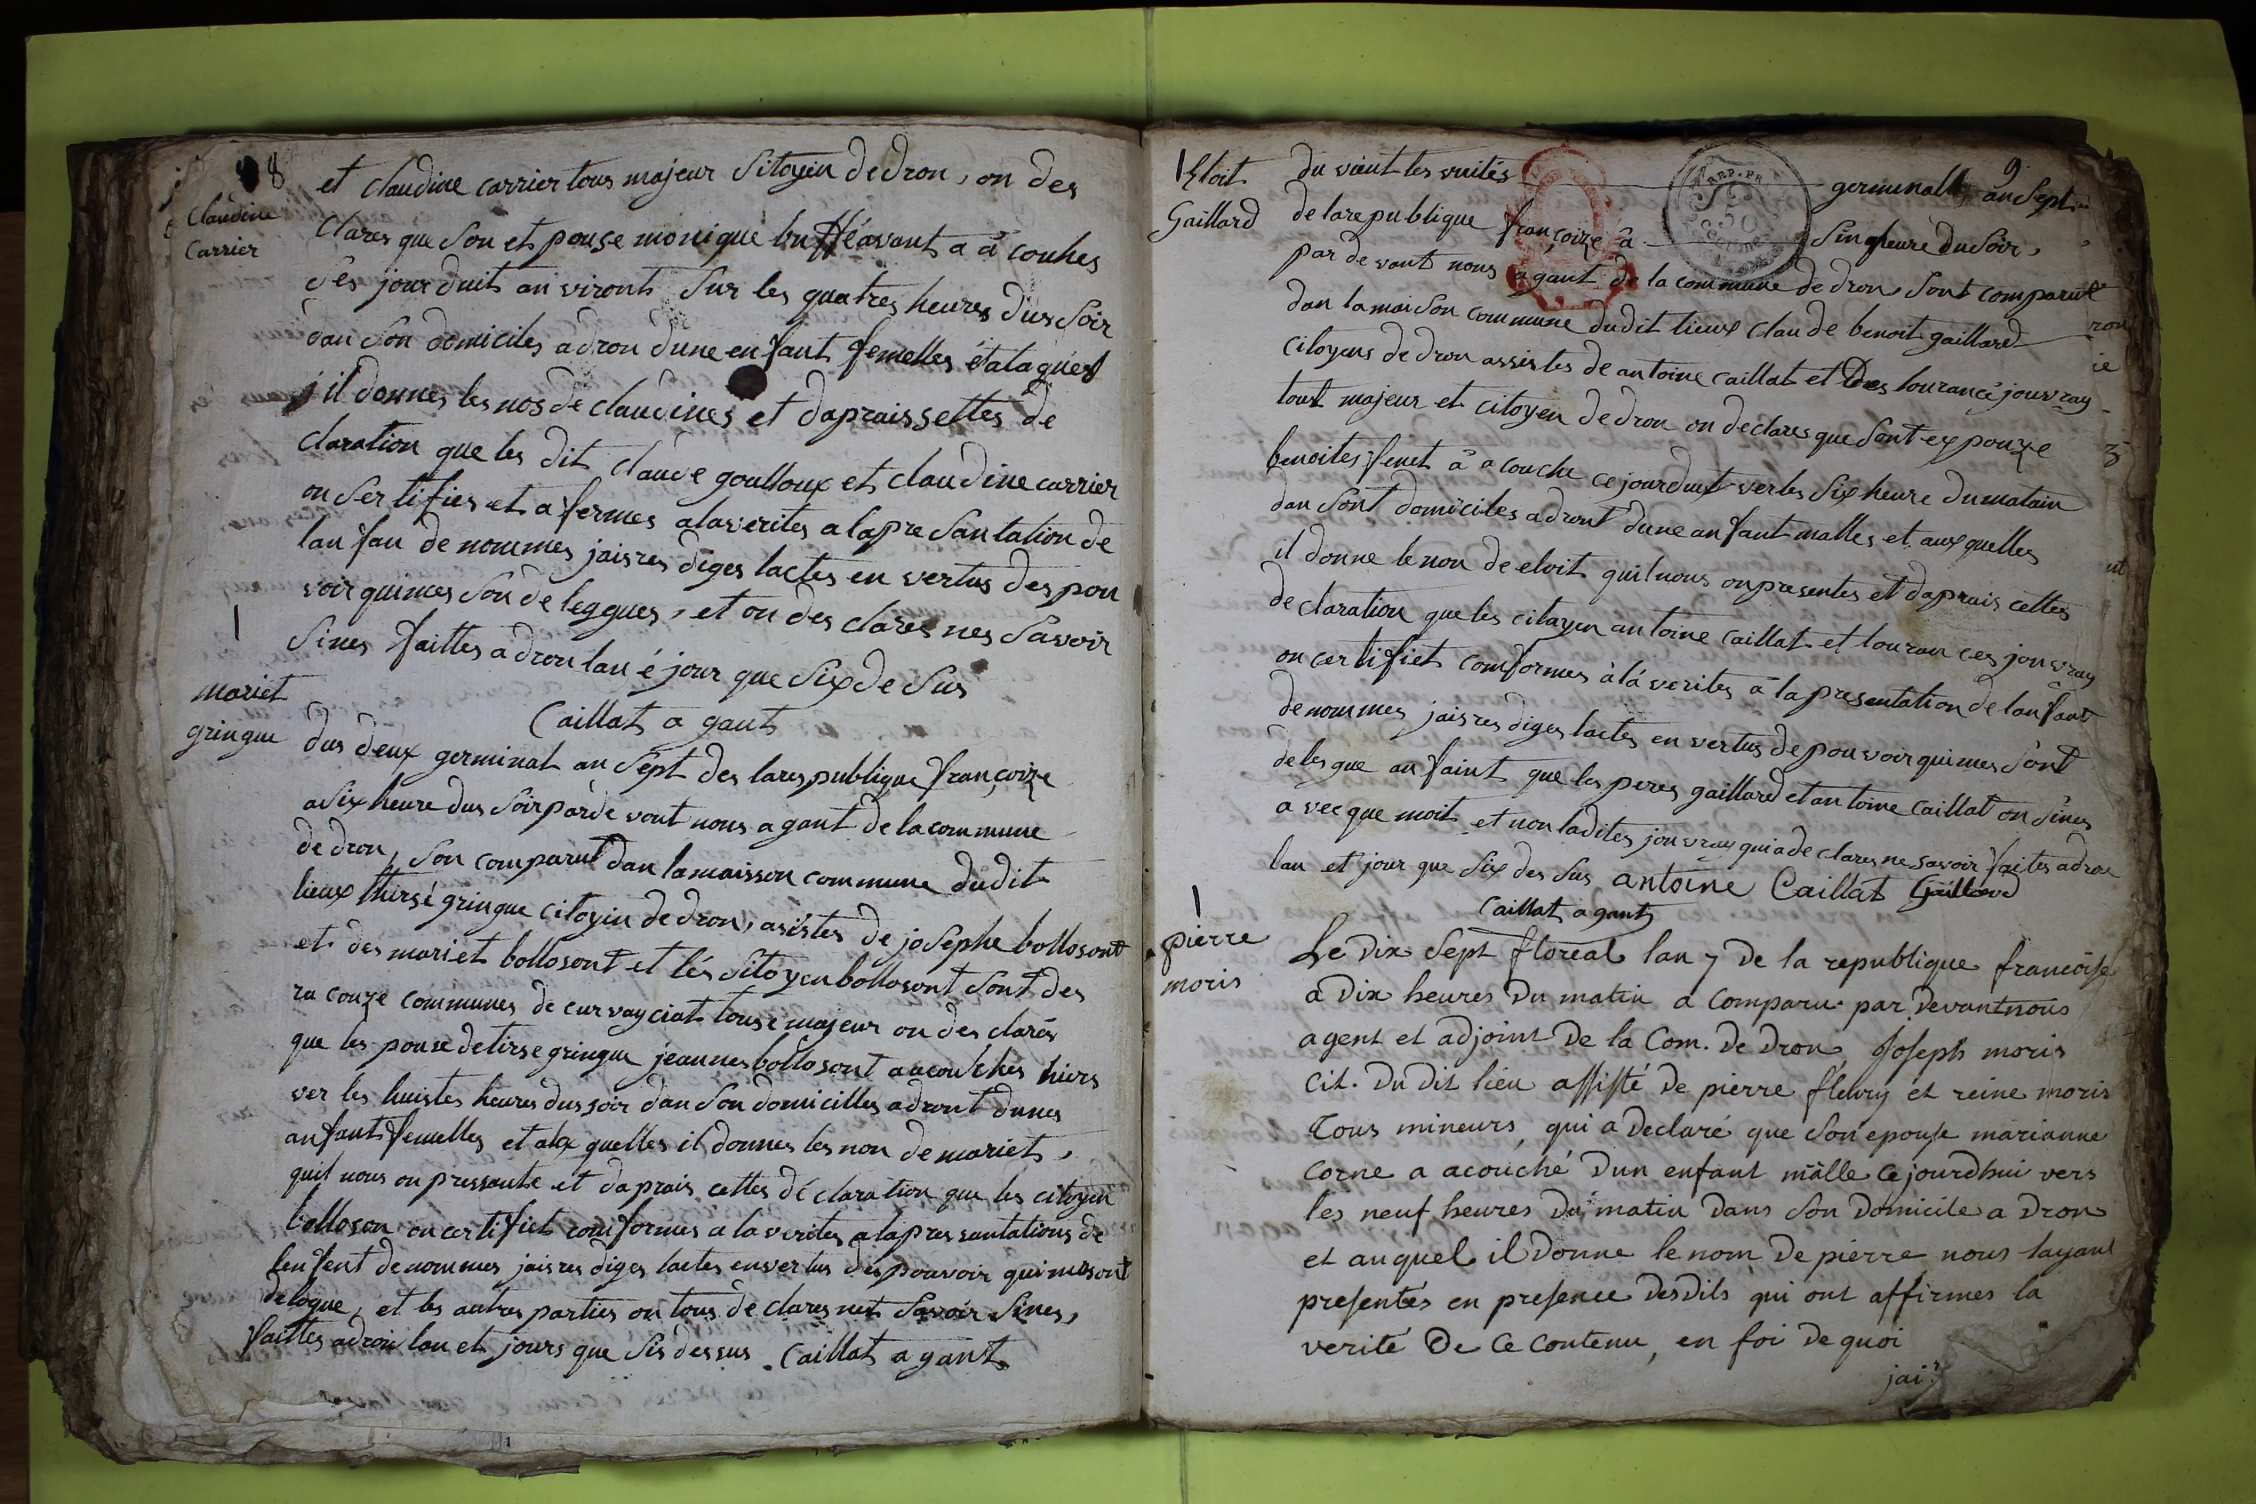 8
Claudine
Carrier
et claudine carrier tous majeur Sitoyen de dron, on des
clares que Son et pouse monique buffé avant a a couhes
Ses jourduit an viront Sur les quatres heures dus Soir
dan Son domiciles a dron dune enfant femelles
il donnes les nos de claudines et dapraissettes de
claration que les dit claude goulloux et claudine carrier
on Sertifies et a fermes alaverites a lapresantation de
lanfan de nommes jaisres diges lactes en vertus des pou
voir quimes Son deleggues, et on des clares nes Savoir
Sines faittes a dron lan é jour que Six de Sus
Caillat a gant
mariet
gringue
dus deux germinal an Sept des lares publique françoize
a Six heure dus Soir par de vant nous a gant de la commune
de dron, Son comparut dan lamaisson commune dudit
lieux thirsé gringue citoyin de dron, asistes de josephe bollosont
et des mariet bollosont et lés Sitoyen bollosont Sont des
ra couze communes de curvayciat touse majeur on des clarés
que les pouse detirse gringue jeannes bollosont aucouches hiers
ver les huistes heures dussoir dan Son domicilles a dront dunes
anfant femelles et alx quelles il donnes les non de mariet,
quil nous on pressante et daprais cettes déclaration que les citoyen
bolloson on certifiet comformes a la verites a lapressantations de
lenfent denommes jaisres diges lactes envertus des pouvoir quimesont
delogue, et les autres parties on tous de clares net Savoir Sines,
faittes a dron lan et jours que Sis dessus. Caillat a gant
9.
Eloit
Gaillard
du vaint les vuités germinall an Sept
de larepublique françoize a Sinq heure du Soir,
par de vant nous a gant de la commune de dron Sont comparut
dan la maison commune dudit lieux claude benoit gaillard
citoyens de dron assistes de antoine caillat et des lourance jouvray
tout majeur et citoyen de dron on declares que Sont expouze
benoites fenet â a couche cejourduit verles Six heure dumatain
dan Sont domiciles a dront dune anfant malles et aux quelles
il donne le non de eloit quil nous on presentes et daprais cettes
de claration que les citayen antoine caillat et louran ces jouvray
on certifiet comformes à lá verites a la presentation de lanfant
de nommes jaisres diges lactes en vertus de pouvoir quimes Sont
delesgue au faint que les peres gaillard et antoine caillat on Sines
avecque moit et non ladites jouvray quia de clares ne savoir faites a dron
lan et jour que Six des Sus antoine Caillat Gaillard
Caillat a gant
pierre
moris
Le dix Sept floréal lan 7 de la republique francoise
a dix heures du matin a comparu par devant nous
agent et adjoint De la Com. De Dron Joseph moris
cit. Du dit lieu assisté de pierre fleury et reine moris
Tous mineurs, qui a Declaré que Son epouse marianne
corne a acouché Dun enfant mâlle cejourdhui vers
les neuf heures Du matin Dans Son Domicile a Dron
et auquel il Donne le nom De pierre nous layant
presentés en presence Desdits qui ont affirmes la
verité De Ce contenu, en foi De quoi
jai